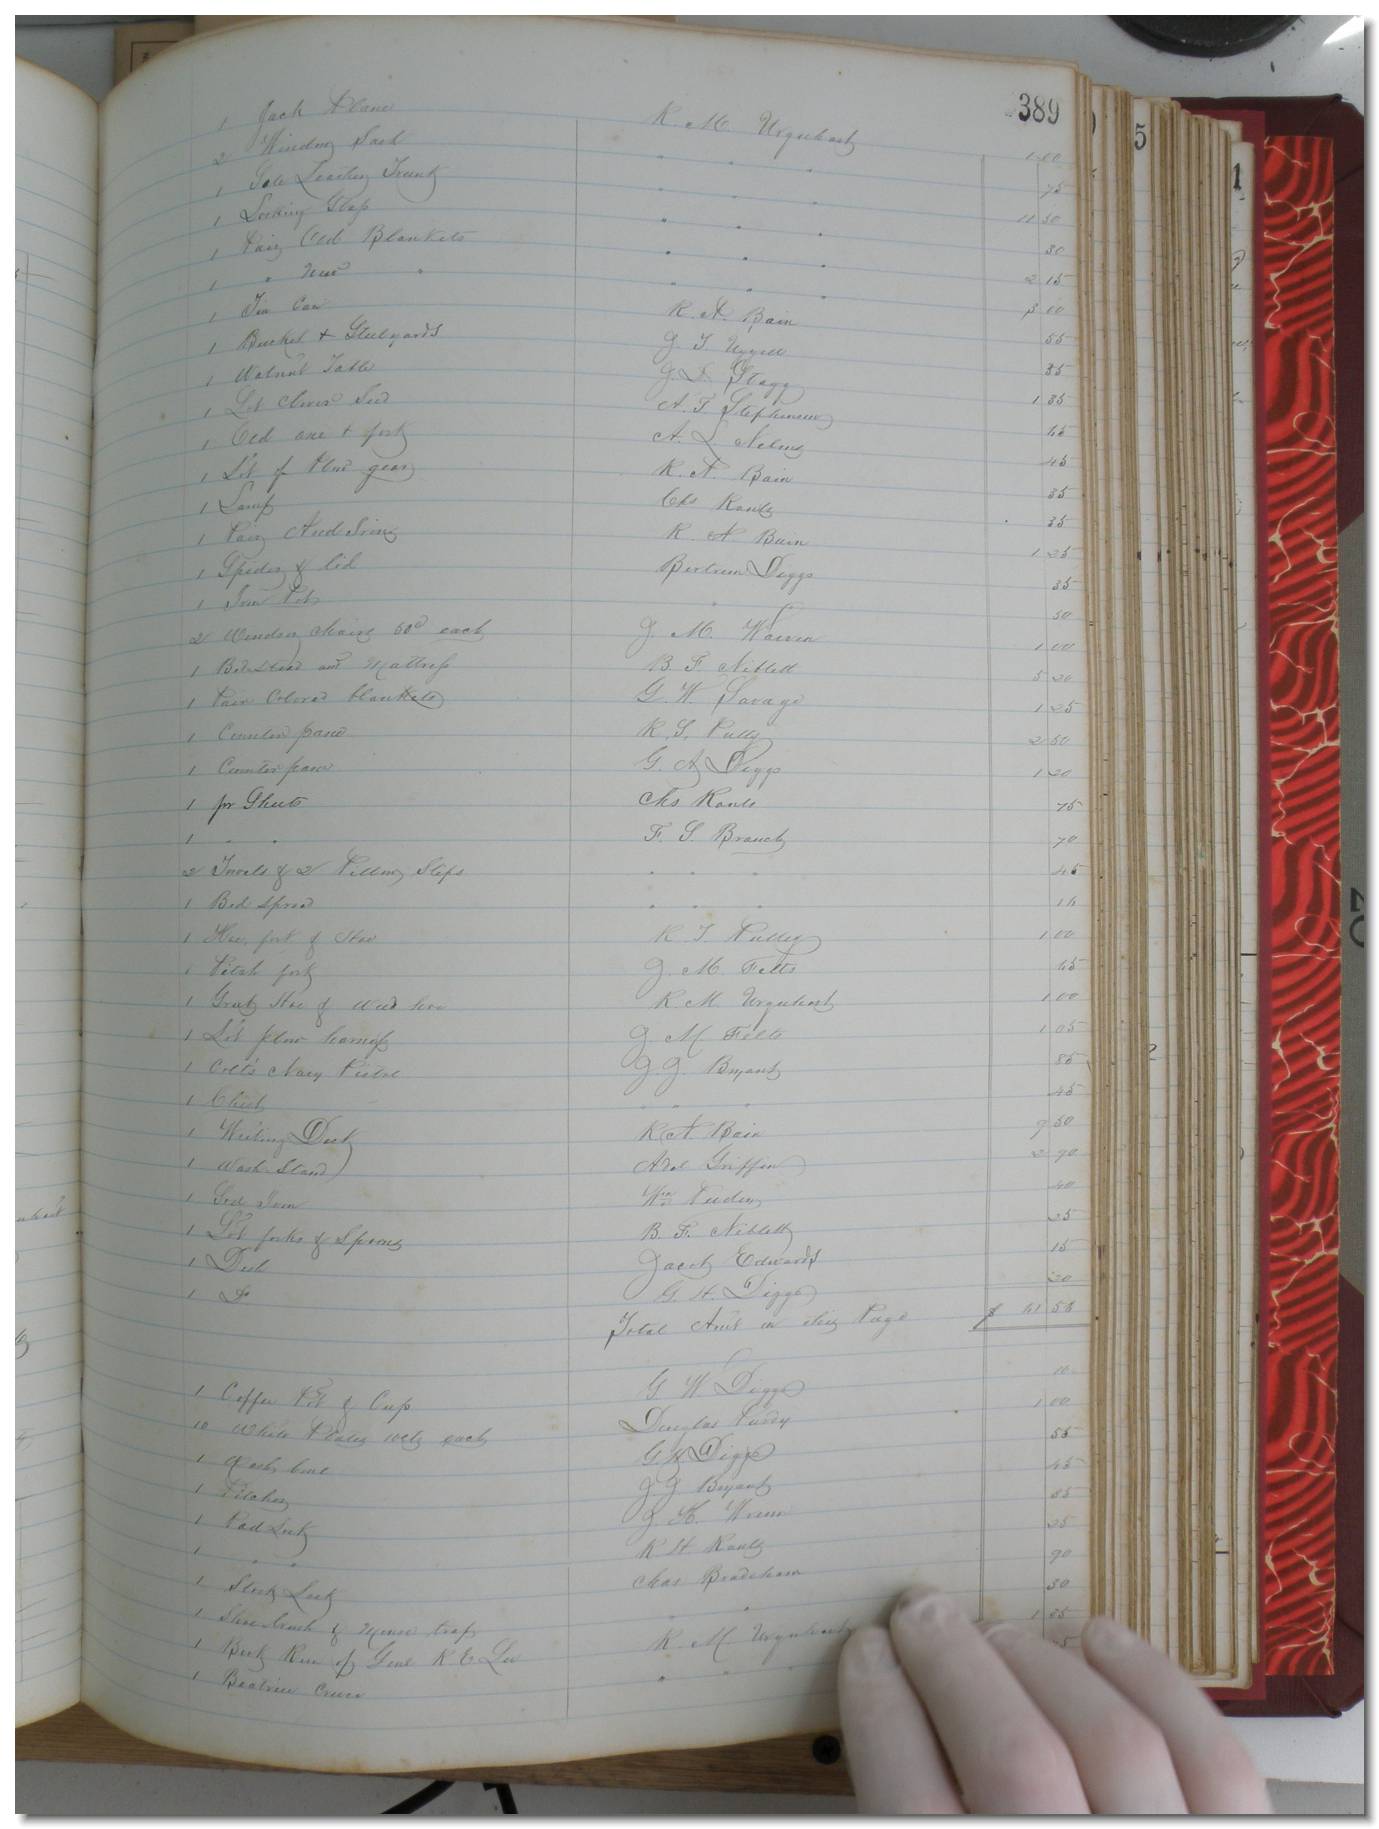 389
1 Jack Plane R. M. Urquhart 1 00
2 Window Sash " " " 75
1 Sole Leather Trunk " " " 11 50
1 Looking Glass " " " 30
1 Pair Old Blankets " " " 2 15
1 " New " " " " 3 00
1 Tin Can R. N. Bain 55
1 Bucket & Steelyards J. T. 35
1 Walnut Table J. D. Stagg 1 35
1 Lot Clover Seed A. T. Stephenson 45
1 Old axe & fork A. L. Nelms 45
1 Lot of Plow gear R. N. Bain 35
1 Lamp Chs Kantz 35
1 Pair And Irons R. N. Bain 1 25
1 Spider & lid Bertrum Diggs 35
1 Iron Pot " 50
2 Windsor Chairs 50c each J. M. 1 00
1 Bedstead and Mattress B. F. Niblett 5 20
1 Pair Colored blankets G. W. Savage 1 25
1 Counter pane R. T. Pully 2 50
1 Counter pane G. Diggs 1 20
1 pr Sheets Chs Kantz 75
1 " " F. S. Branch 70
2 Towels & 2 Pillow Slips " " " 45
1 Bed Spread " " "
1 Hoe, fork & Hoe R. T. Pulley 1 00
1 Pitch fork J. M. Felts 45
1 Grub Hoe & Weed hoe R M Urquhart 1 00
1 Lot plow harness J M Felts 1 05
1 Colt's Navy Pistol J. J. Bryant 85
1 Chest " " " 45
1 Writing Desk R. N. Bain 9 50
1 Wash-Stand Griffin 2 90
1 Iron Wm 40
1 Lot forks & Spoons B. F. Niblett 25
1 Dish Jacob Edwards 15
1 Do G. H. Diggs 20
Total Amt on this Page $
1 Coffee Pot & Cup G W Diggs 10
10 White Plates 10cts each Douglas Purdy 1 00
1 Diggs 55
1 Pitcher J. J. Bryant 45
1 Pad Lock J. 35
1 " " R H Kantz 25
1 Stock Lock Chas Bradshaw 90
1 Shoe brush & Mouse trap " " 30
1 Book Rem of Genl R E Lee R. M Urquhart 1 25
1 Beatrice Cenci " " "